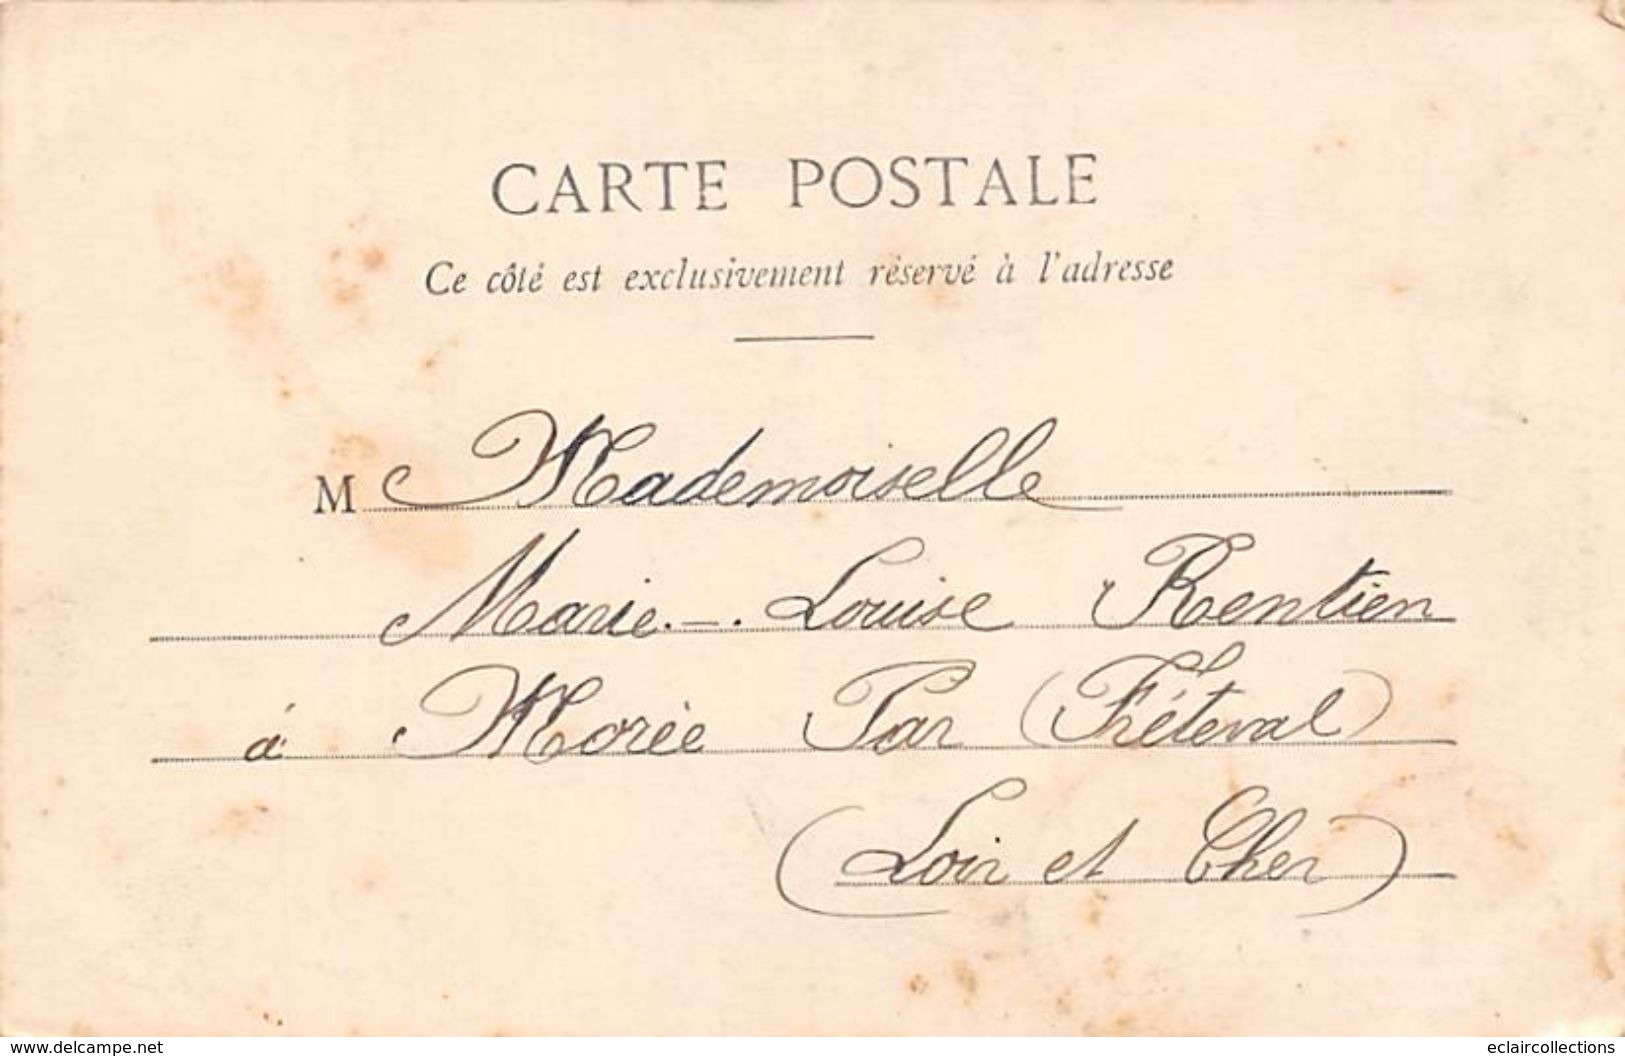 CARTE POSTALE
Ce côté est exclusivement réservé à l'adresse
M Mademoiselle
Marie-Louise Rentien
à Morée Par (Fréteval)
(Loir et Cher)
www.delcampe.net eclaircollections